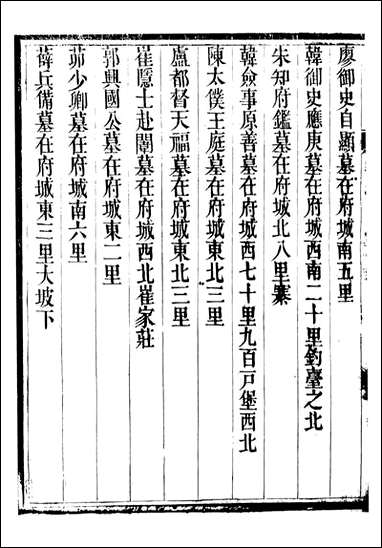 廖御史自顯墓在府城南五里
韓御史應庚墓在府城西南二十里釣臺之北
朱知府鑑墓在府城北八里寨
韓僉事原善墓在府城西七十里九百戸堡西北
陳太僕王庭墓在府城東北三里
盧都督天福墓在府城東北三里
崔隱士赴闈墓在府城西北崔家莊
郭興國公墓在府城東二里
茆少卿墓在府城南六里
薛兵備墓在府城東三里大坡下